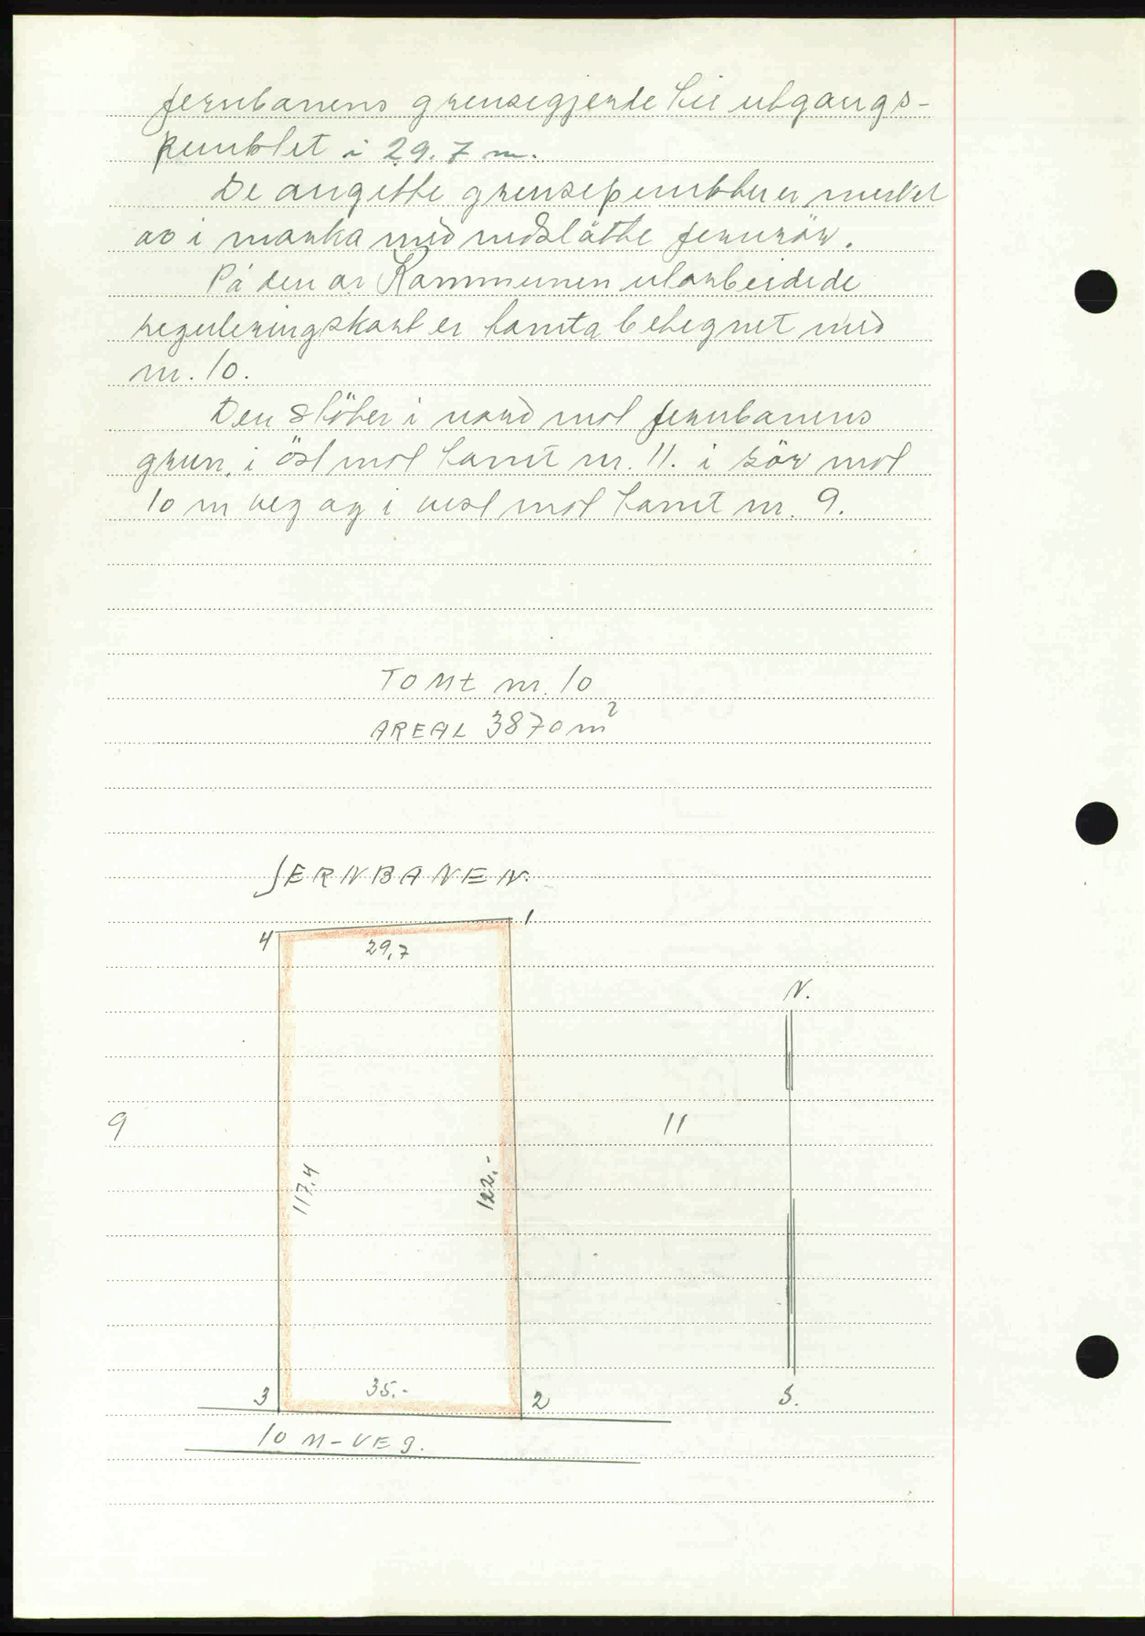 jernbanens grensegjerde til utgangs-
punktet i 29.7 m.
De angitte grensepunkter er merket
av i marka med nedslåtte jernrör.
På den av Kommunen utarbeidede
reguleringskart er tomta betegnet med
nr. 10.
Den stöter i nord mot jernbanens
grunn, i öst mot tomt nr. 11. i sör mot
10 m veg og i vest mot tomt nr. 9.
TOMt nr. 10
AREAL 3870 m²
JERNBANEN.
4 1
29,7
N.
9 11
117,4 122.-
3 35.- 2 S.
10 M-VEG.